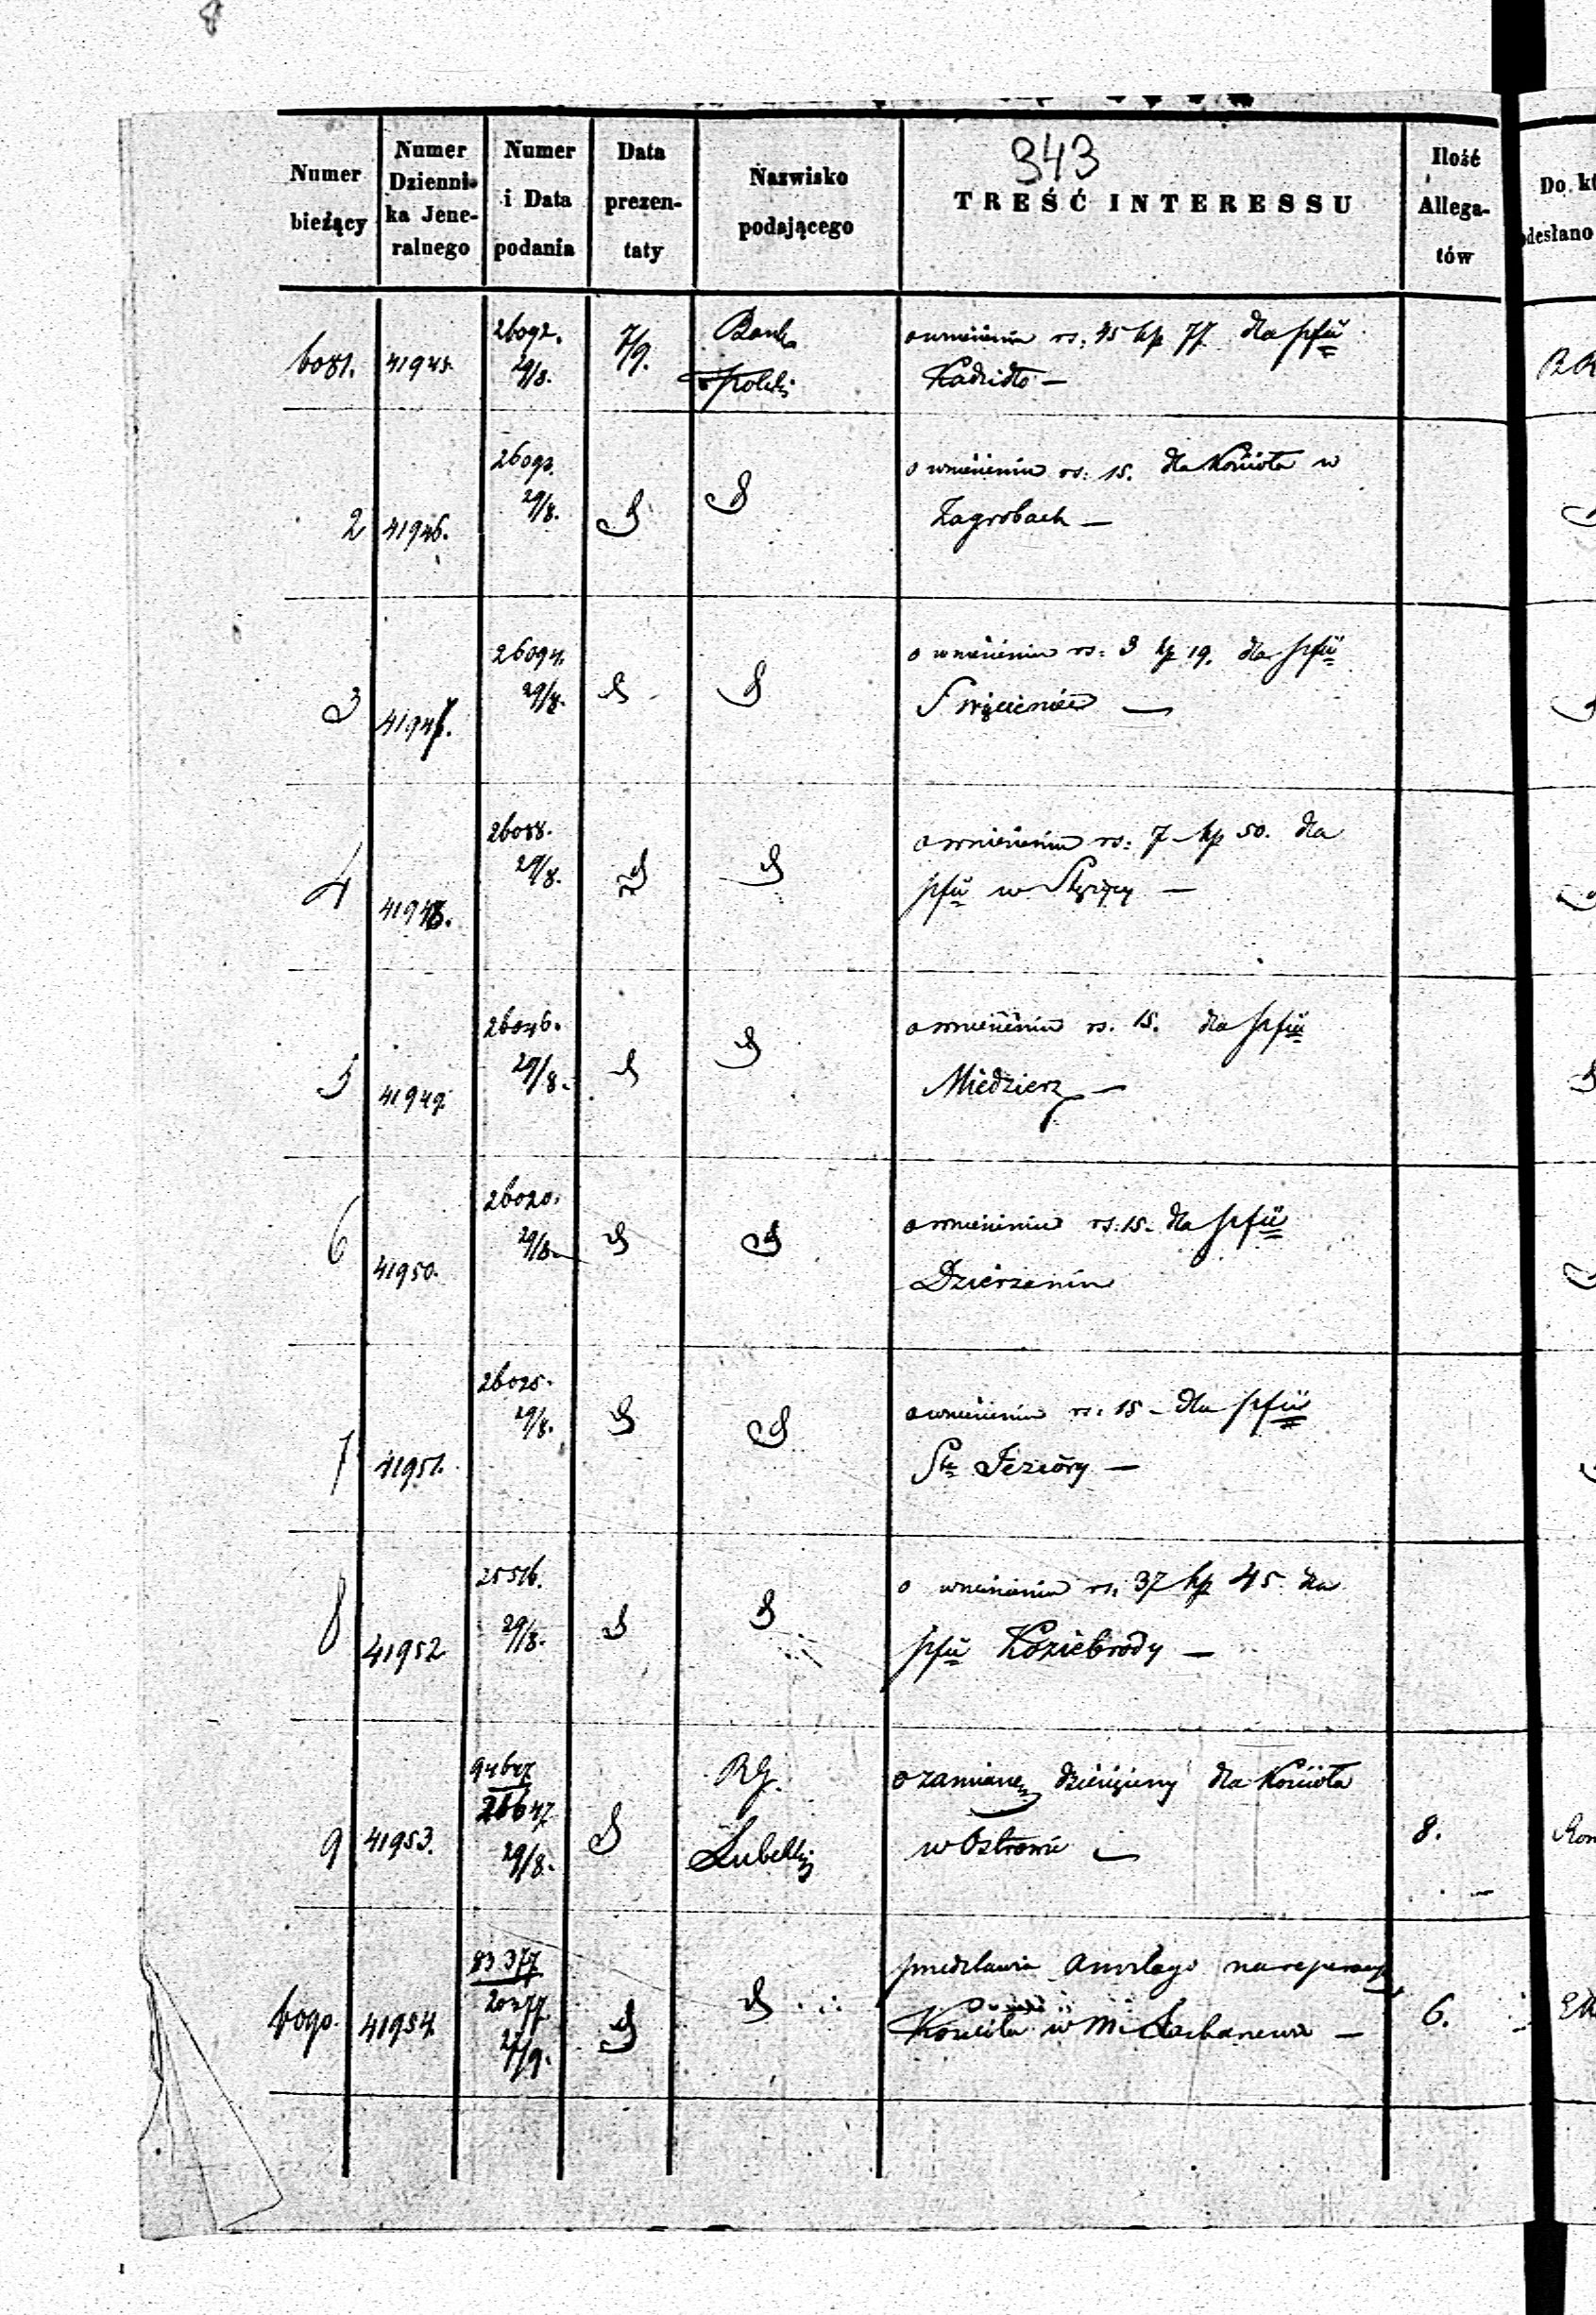 343
Numer bieżący
Numer Dziennika Jeneralnego
Numer i Data podania
Data prezentaty
Nazwisko podającego
TREŚĆ INTERESSU
Ilość Allegatów
6081. 41945. 26092. 29/8. 7/9. Bank Polski
o wniesieniu rs: 45 kp 77. dla pfii
Kadzidło —
2 41946. 26093. 29/8.
o wniesieniu rs: 15. dla Kościoła w
Zagrobach —
3 41947. 26094. 29/8.
o wniesieniu rs: 3 kp 19. dla pfii
Święcienice —
4 41948. 26088. 29/8.
o wniesieniu rs: 7 kp 50. dla
pfii w Stężycy —
5 41949. 26046. 29/8.
o wniesieniu rs. 15. dla pfii
Miedzierz —
6 41950. 26020. 29/8.
o wniesieniu rs: 15. dla pfii
Dzierzenin
7 41951. 26025. 29/8.
o wniesieniu rs: 15 – dla pfii
Jeziory —
8 41952 25516. 29/8.
o wniesieniu rs. 37 kp 45. dla
pfii Koziebrody —
9 41953. 29/8. RG. Lubelski
o zamianę dziesięciny dla Kościoła
w Ostrowie — 8.
6090. 41954. 83377 20277 27/9.
przedstawia na reperacyę
Kościoła w m. 6.